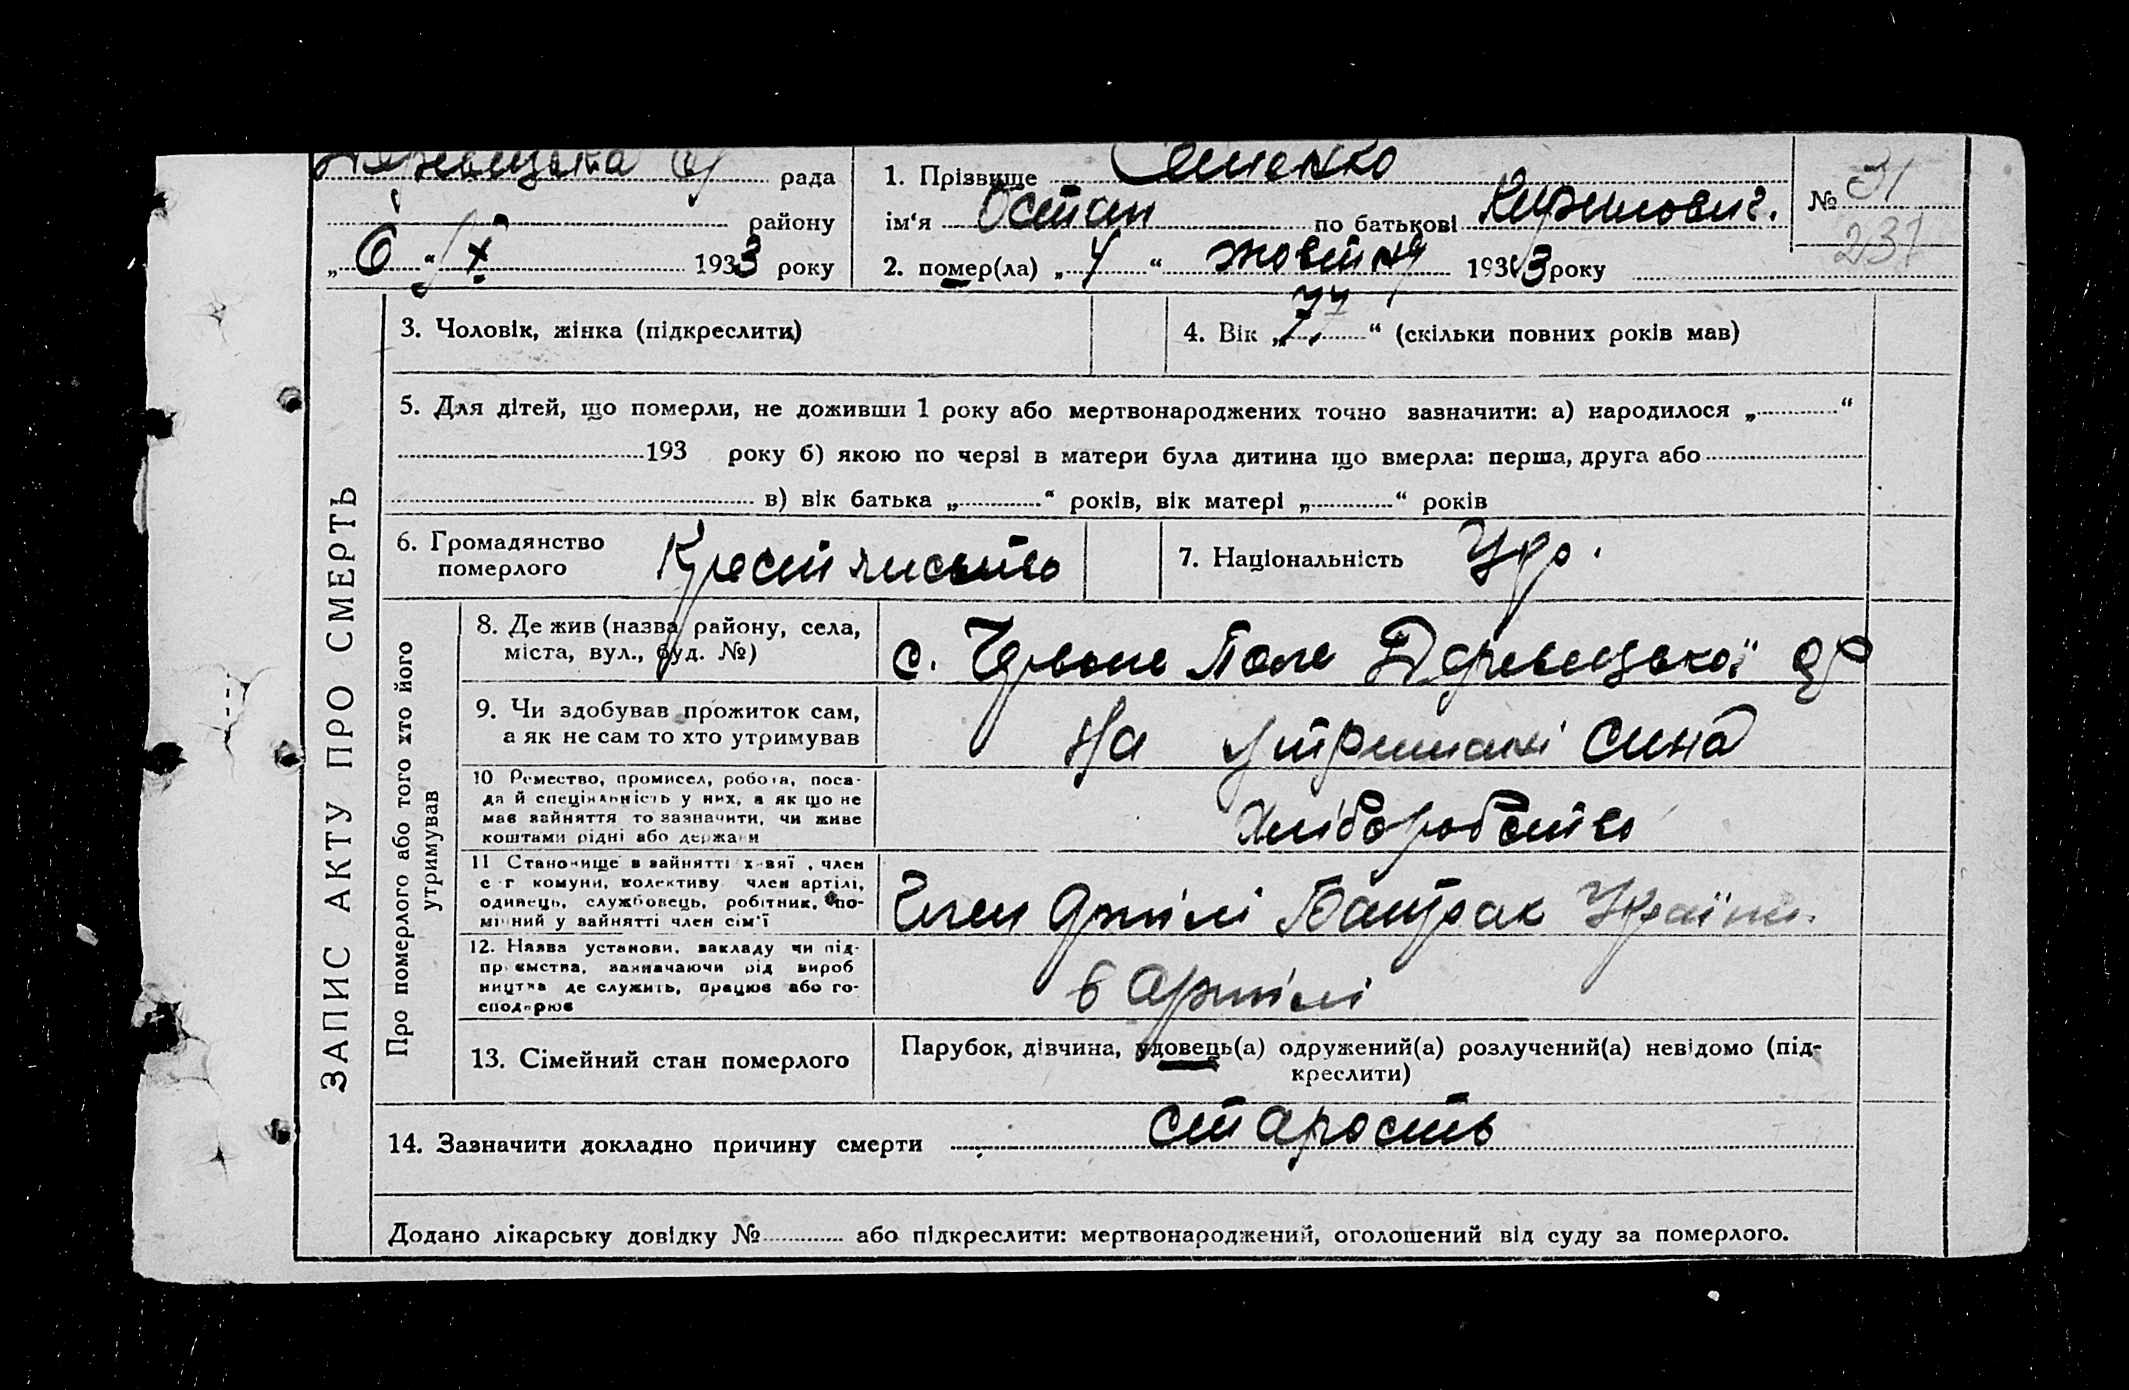 рада
району
„ 6 “ X 1933 року
1. Прізвище Семенко
ім‘я Остап по батькові Кирилович.
№ 31
237
2. помер(ла) „ 4 “ жовтня 1933 року
ЗАПИС АКТУ ПРО СМЕРТЬ
3. Чоловік, жінка (підкреслити)
4. Вік „ 77 “ (скільки повних років мав)
5. Для дітей, що померли, не доживши 1 року або мертвонароджених точно зазначити: а) народилося „ “
193 року б) якою по черзі в матери була дитина що вмерла: перша, друга або
в) вік батька „ “ років, вік матері „ “ років
6. Громадянство
померлого
7. Національність Укр.
Про померлого або того хто його
утримував
8. Де жив (назва району, села,
міста, вул., буд. №)
с. Червоне Поле
9. Чи здобував прожиток сам,
а як не сам то хто утримував
На утримані сина
10 Ремество, промисел, робота, поса-
да й спеціяльність у них, а як що не
має зайняття то зазначити, чи живе
коштами рідні або держави
Хліборобство
11 Становище в зайнятті х-вяї , член
с-г комуни, колективу член артілі,
одинець, службовець, робітник, по-
мічний у зайнятті член сім‘ї
Член Артілі Батрак України
12. Назва установи, закладу чи під-
приємства, зазначаючи рід вироб
ництва де служить, працює або го-
сподарює
в артілі
13. Сімейний стан померлого
Парубок, дівчина, удовець(а) одружений(а) розлучений(а) невідомо (під-
креслити)
14. Зазначити докладно причину смерти старость
Додано лікарську довідку № або підкреслити: мертвонароджений, оголошений від суду за померлого.